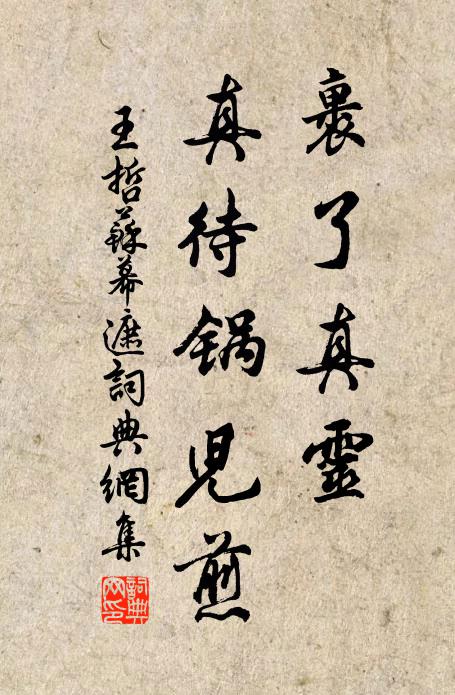 裹了真靈
真待锅兒煎
王哲蘇幕遮詞典網集
詞典网印